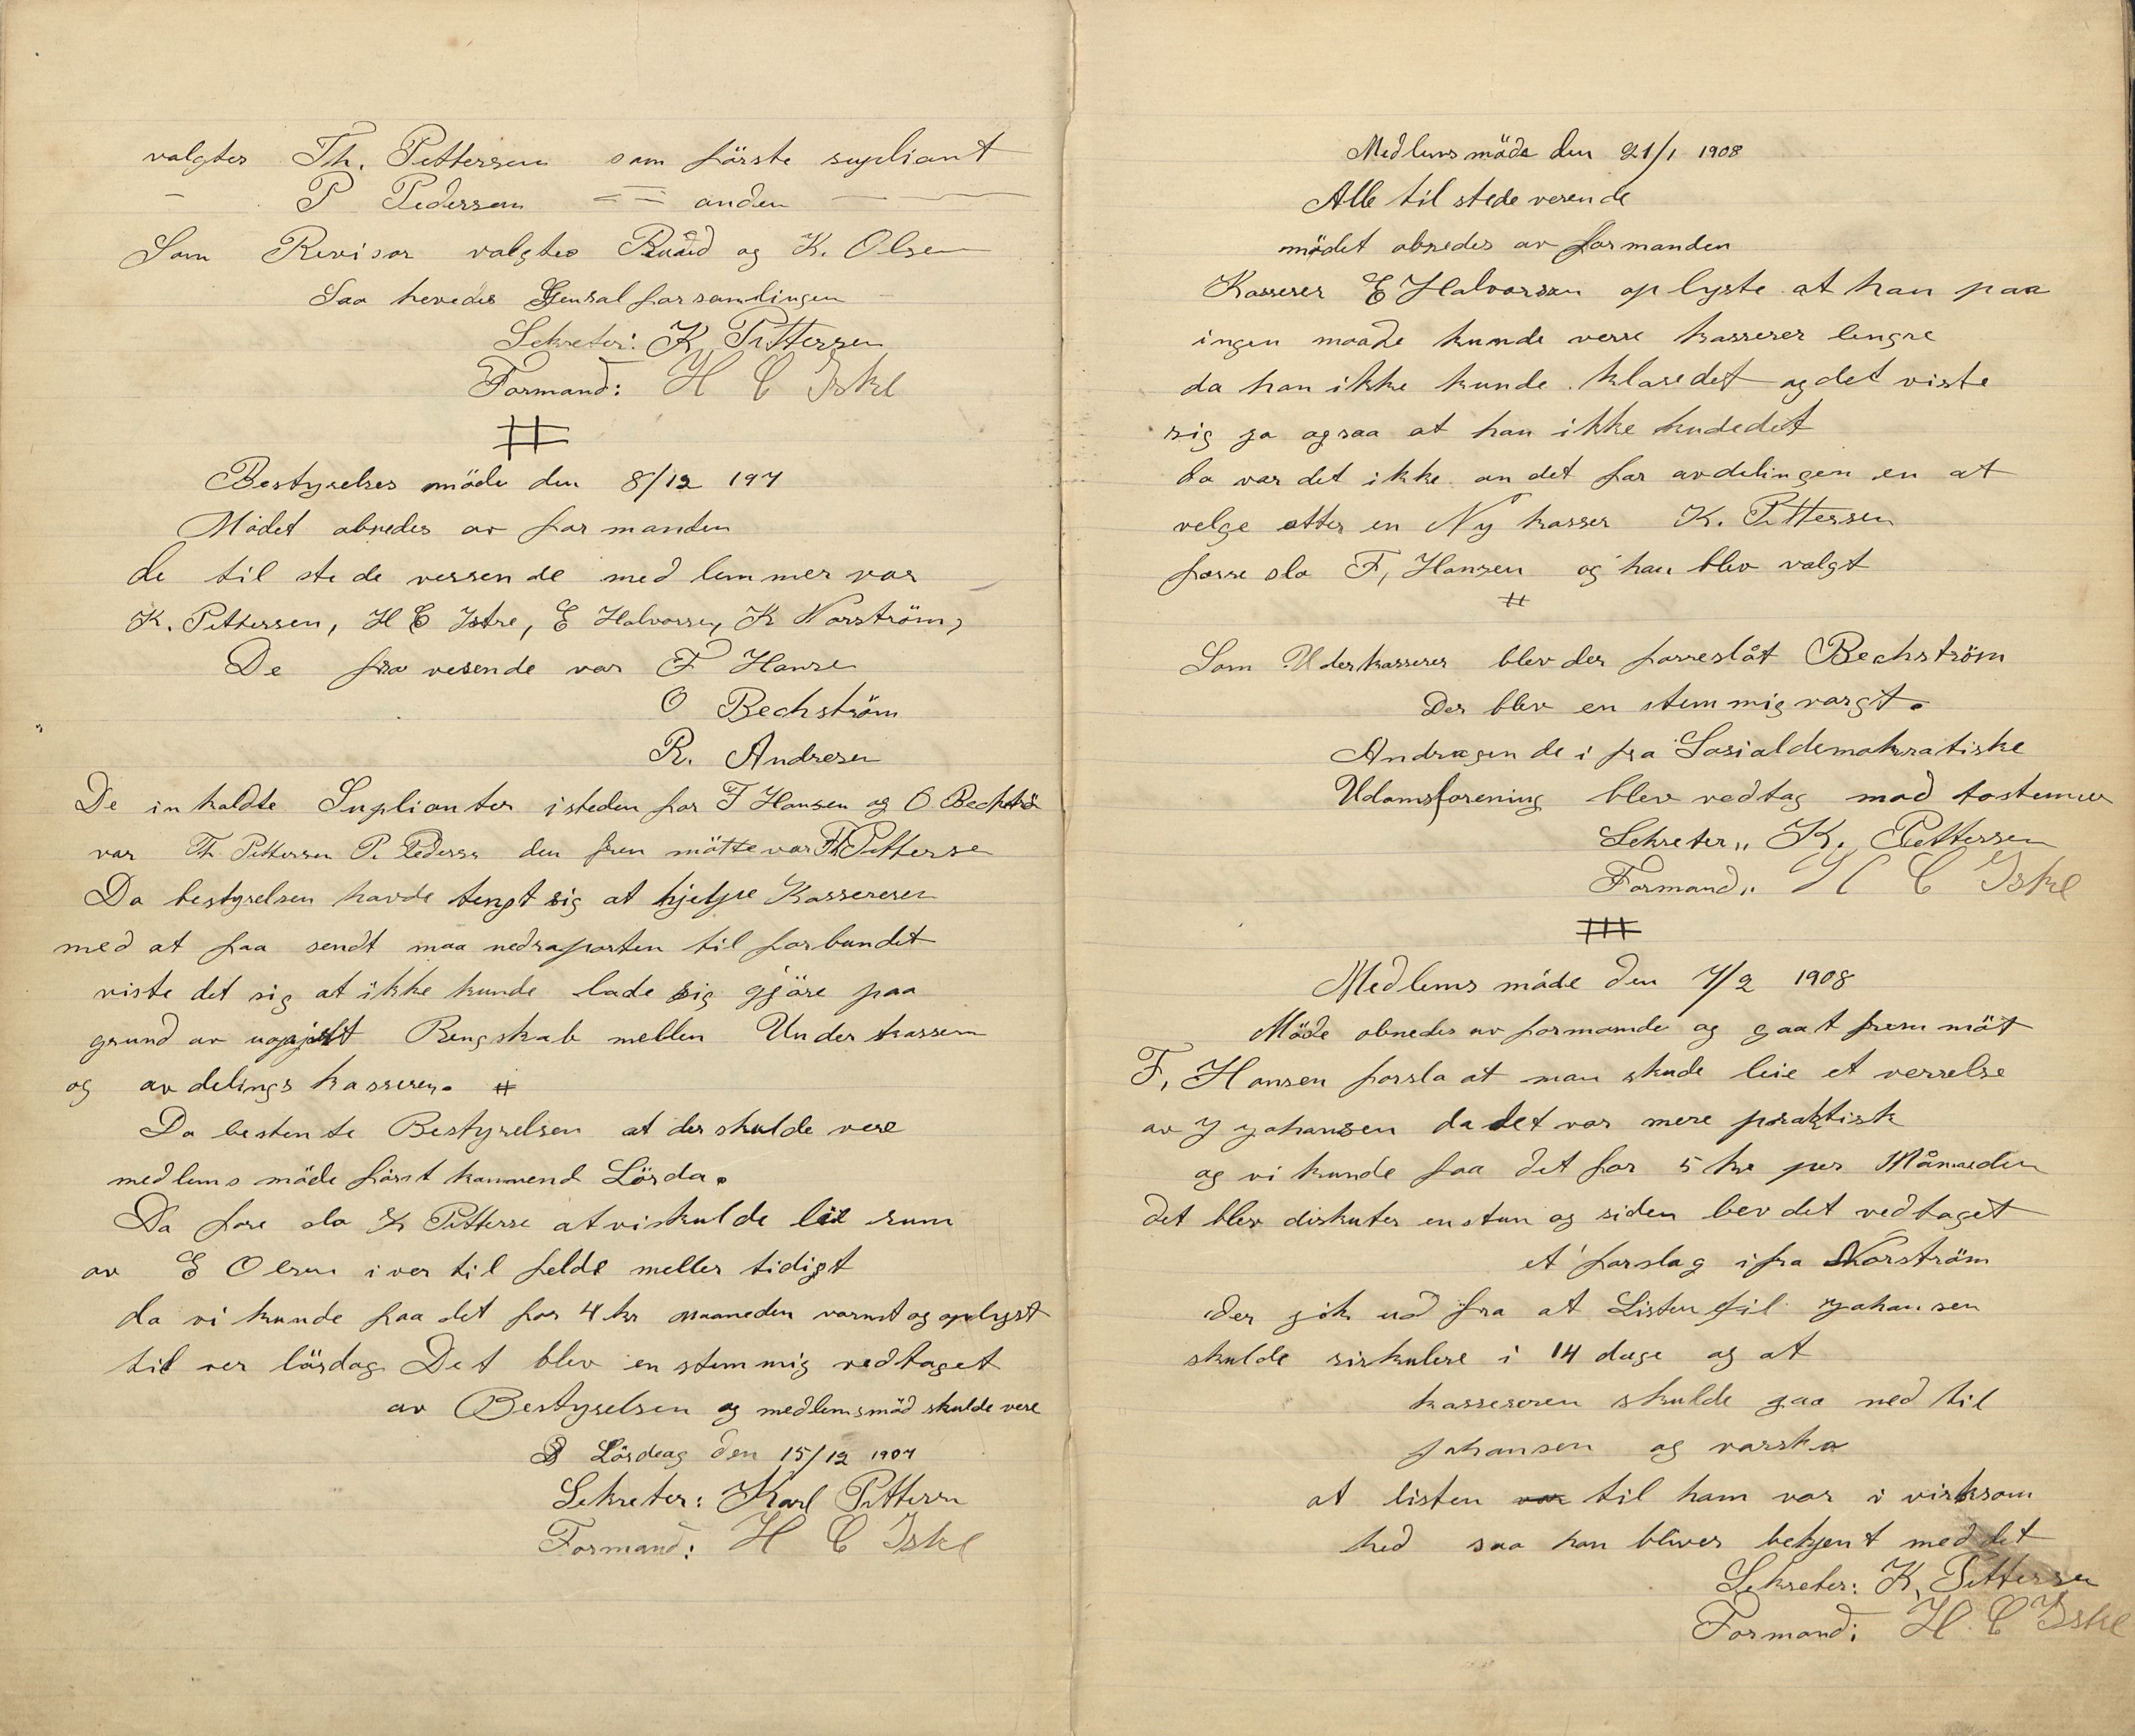 valgtes Th. Pettersen som förste supliant
- P Pedersen = = anden — —
Som Revisor valgtes Ruud og K. Olsen
Saa hevedes Genralforsamlingen
Sekreter: K. Pettersen
Formand: H C Iskl
Bestyrelses möde den 8/12 197
Mödet abnedes av for manden
de til stede vessende med lemmer var
K. Pettersen, H C Istre, E Halvorsen, K Norström,
De fra vesende var F Hansen
O Bechström
R. Andresen
De inkaldte Suplianter isteden for F Hansen og O Bechströ
var Th. Pettersen P. Pederse den frem mötte var Th Petterse
Da bestyrelsen havde tengt sig at hjelpe Kassereren
med at faa sendt maa nedraporten til forbundet
viste det sig at ikke kunde lade sig gjöre paa
grund av uopgjort Rengskab mellen Under kassern
og avdelings kasseren. #
Da bestem te Bestyrelsen at der skulde vere
medlems möde först kommend Lörda.
Da fore slo K Petterse at vi skulde leie rum
av E Olsen iver til felde meller tidigt
da vi kunde faa det for 4 kr maaneden varmt og oplyst
til ver lördag Det blev en stemmig vedtaget
av Bestyrelsen og medlemsmöd skulde vere
Lördeag den 15/12 1907
Sekreter: Karl Pettern
Formand: H C Iskl
Medlemsmöde den 21/1 1908
Alle til stede verende
mödet abnedes av formanden
Kasserer E Halvorsen op lyste at han paa
ingen maade kunde verre kasserer lengre
da han ikke kunde klaredet og det viste
sig ja ogsaa at han ikke kudedet
da var det ikke an det for avdelingen en at
velge etter en Ny kasser K. Pettersen
forre slo F, Hansen og han blev valgt
#
Som Uderkasserer blev der forreslåt Bechström
Der blev en stemmig vargt.
Andragen de i fra Sosialdemokratiske
Udomsforening blev vedtag mod tostemmer
Sekreter" K. Pettersen
Formand" H C Iskl
Medlems möde den 7/2 1908
Möde abnedes av formande og gaat frem möt
F, Hansen forsla at man skude leie et verrelse
av J Johansen da det var mere praktisk
og vi kunde faa det for 5 kr per Månaeden
det blev diskutes en stun og siden bev det vedtaget
et forslag ifra Norström
der gik ud fra at Listen til Johansen
skulde sirkulere i 14 dage og at
kassereren skulde gaa ned til
Johansen og varska
at listen var til ham var i virksom
hed saa han bliver bekjent med det
Sekreter: K. Pettersen
Formand: H. C Iskl